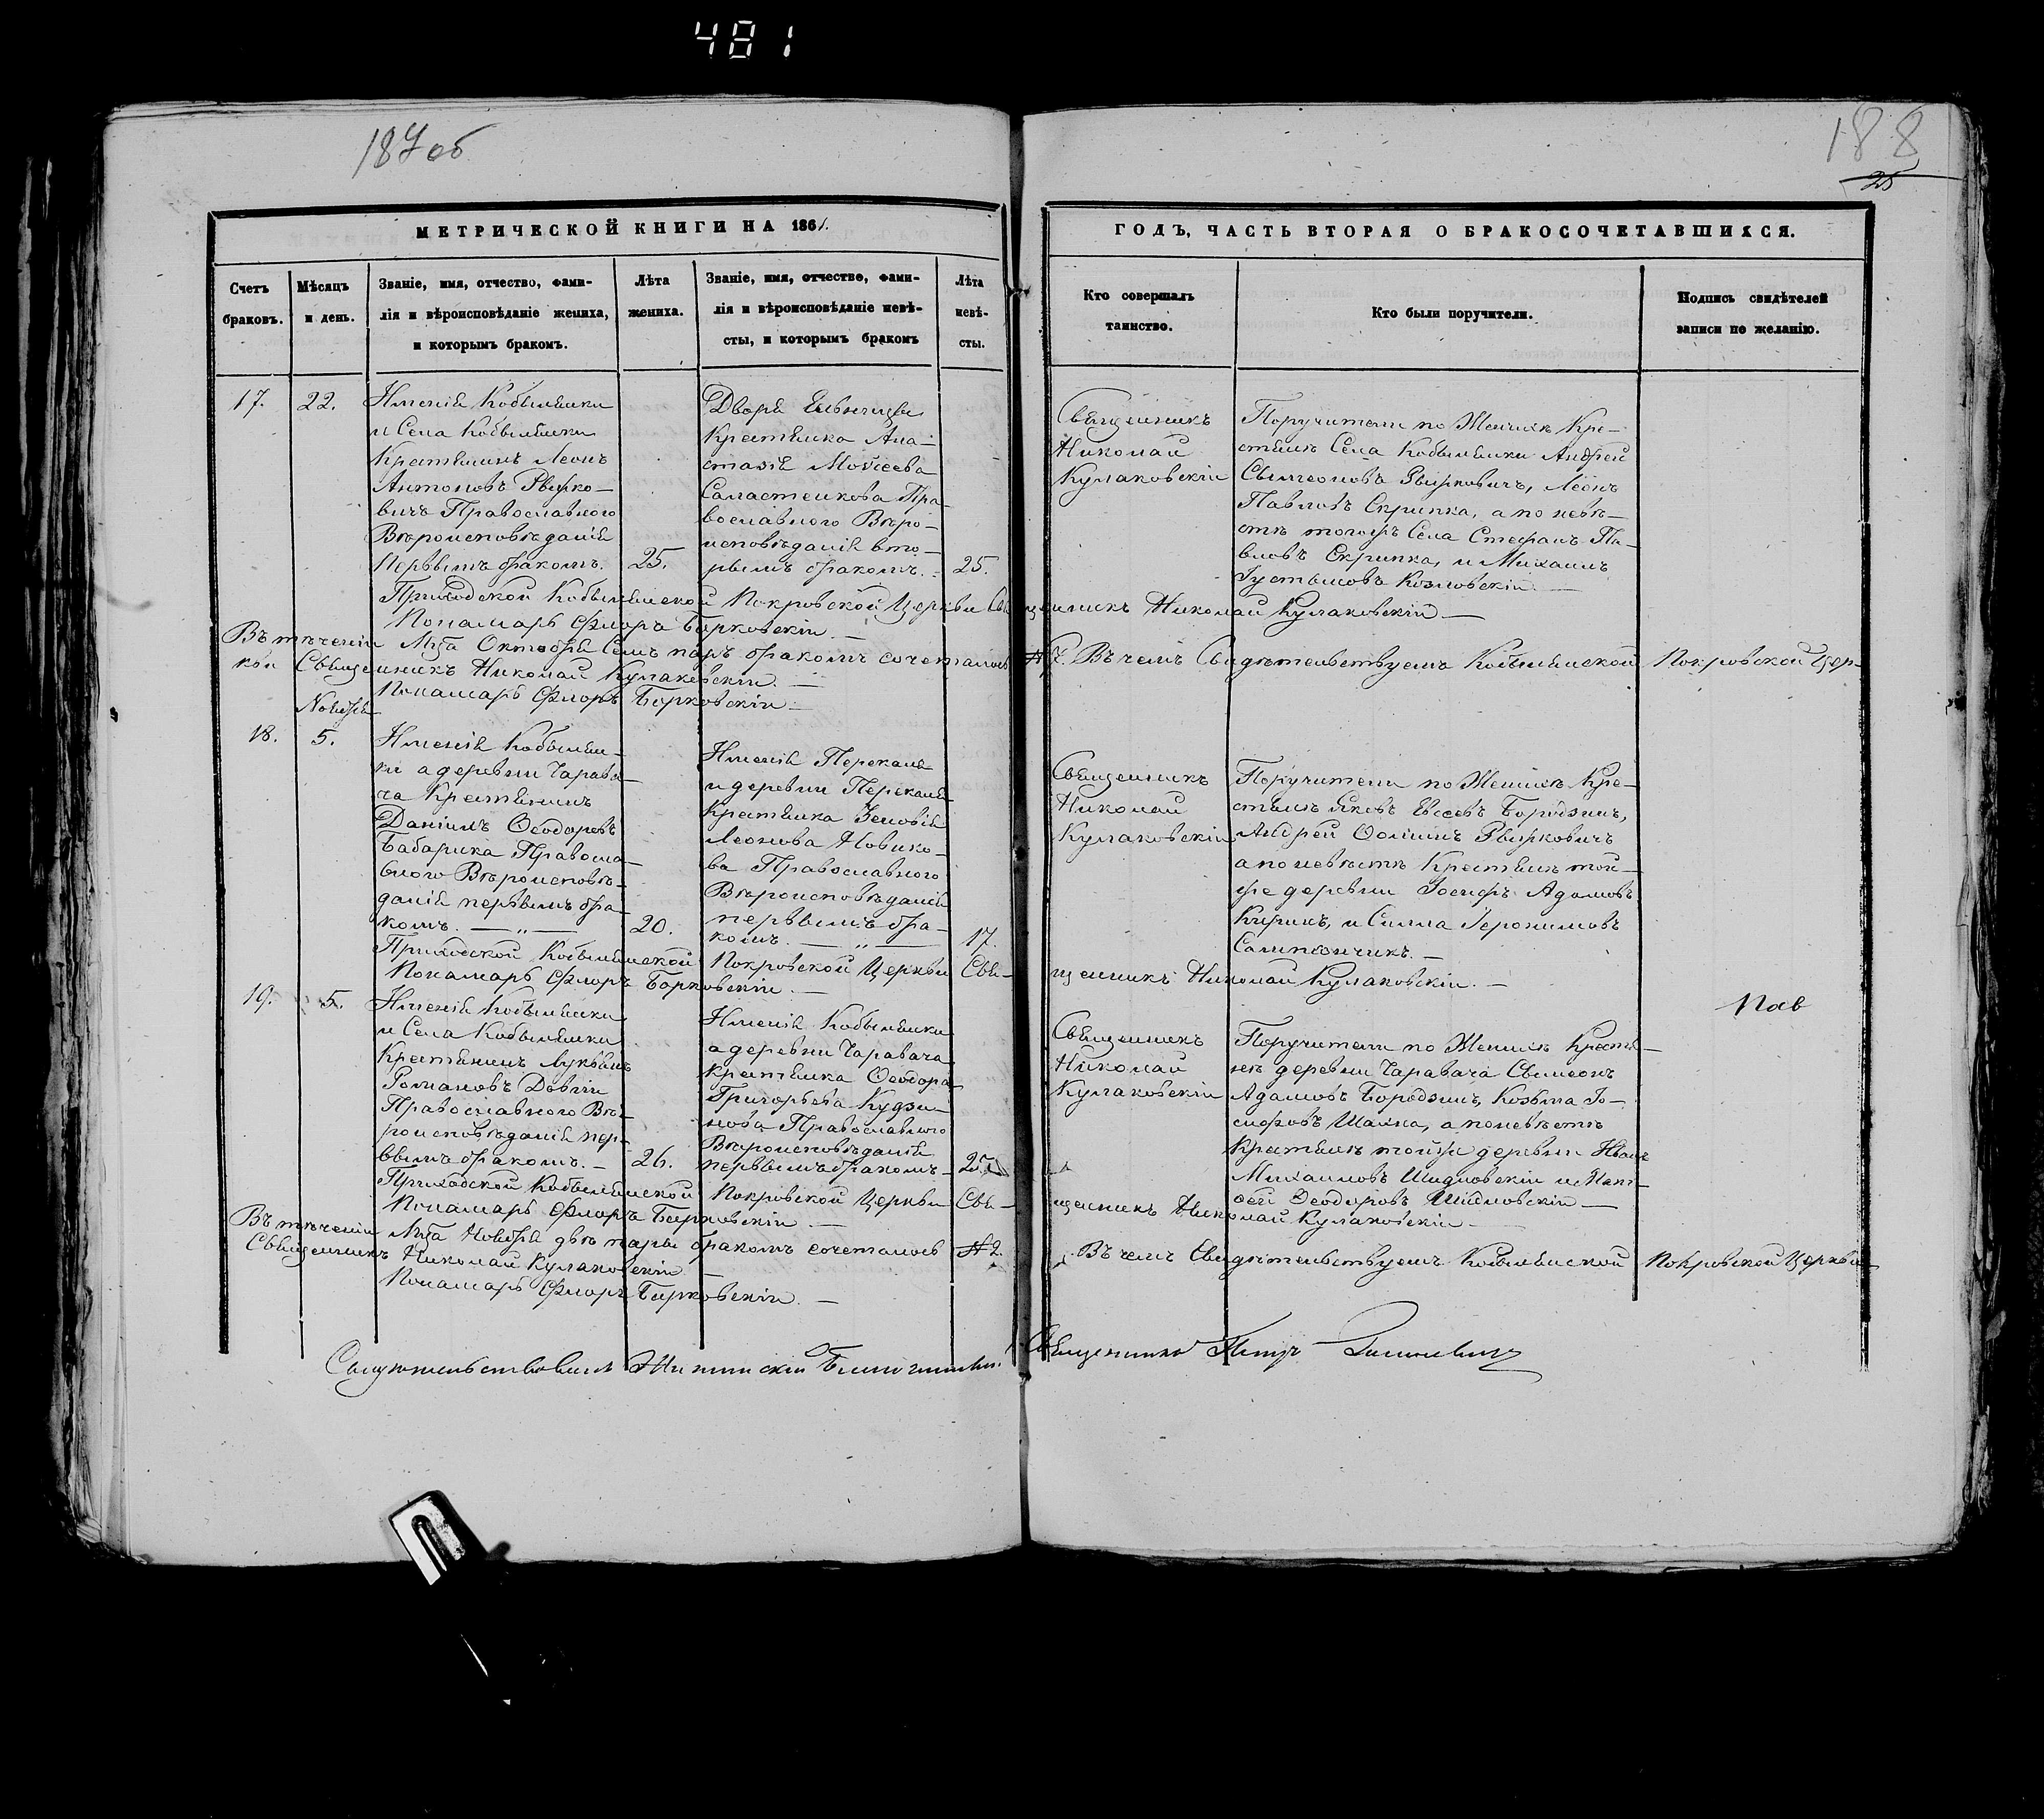 481
187 об
188
25
МЕТРИЧЕСКОЙ КНИГИ НА 1861.
ГОДЪ, ЧАСТЬ ВТОРАЯ О БРАКОСОЧЕТАВШИХСЯ.
Счетъ браковъ.
Мѣсяцъ и день.
Званіе, имя, отчество, фами-
лія и вѣроисповѣданіе жениха,
и которымъ бракомъ.
Лѣта
жениха.
Званіе, имя, отчество, фами-
лія и вѣроисповѣданіе невѣ-
сты, и которымъ бракомъ
Лѣта
невѣ-
сты.
Кто совершалъ
таинство.
Кто были поручители.
Подпись свидѣтелей
записи по желанію.
17. 22.
Имѣнія Кобыльники
и Села Кобыльники
Крестьянинъ Леонъ
Антоновъ Рышко-
вичъ Православного
Вѣроисповѣданія
первымъ бракомъ. 25.
Двора
Крестьянка Ана-
стазія Моѵсеева
Православного Вѣро-
исповѣданія вто-
рымъ бракомъ. 25.
Священникъ
Николай
Кулаковскій
Поручители по Женихѣ Кре-
стьяне Села Кобыльники Андрей
Сѵмеоновъ Рышковичъ, Леонъ
Павловъ Скрипка, а по невѣ-
стѣ тогожъ Села Стефанъ Па-
вловъ Скрипка, и Михаилъ
Іустыновъ Козловскій.
Приходской Кобыльникской Покровской Церкви Священникъ Николай Кулаковскій
Понамарь Флоръ Барковскій
Въ теченіи Мца Октобря Семь паръ бракомъ сочеталось №7. Въ чемъ Свидѣтельствуемъ Кобыльникской Покровской Цер-
кви Священникъ Николай Кулаковскій.
Понамарь Флоръ Барковскій
Ноября
18. 5.
Имѣнія Кобыльни-
ки а деревни Чарава-
ча Крестьянинъ
Даніилъ Ѳеодоровъ
Бабарика Правосла-
вного Вѣроисповѣ-
данія первымъ бра-
комъ. 20.
Имѣнія Перекалья
и деревни Перекалья
Крестьянка Зеновія
Леонова Новико-
ва Православного
Вѣроисповѣданія
первымъ бра-
комъ. 17.
Священникъ
Николай
Кулаковскій
Поручители по Женихѣ Кре-
стьяне Яковъ Евсеевъ Бородзинъ,
Андрей Ѳоминъ Рышковичъ
а по невѣстѣ Крестьяне той-
же деревни Іосифъ Адамовъ
и Силла Іеронимовъ
Приходской Кобыльникской Покровской Церкви Свя-
щенникъ Николай Кулаковскій.
Понамарь Флоръ Барковскій.
19. 5.
Имѣнія Кобыльники
и Села Кобыльники
Крестьянинъ Лукьянъ
Романовъ
Православного Вѣ-
роисповѣданія пер-
вымъ бракомъ. 26.
Имѣнія Кобыльники
а деревни Чаравача
Крестьянка Ѳеодора
Григорьева Кудзи-
нова Православного
Вѣроисповѣданія
первымъ бракомъ 25.
Священникъ
Николай
Кулаковскій
Поручители по Женихѣ Кресть-
яне деревни Чаравача Сѵмеонъ
Адамовъ Бородзинъ, Козьма Іо-
сифовъ а по невѣстѣ
Крестьяне тойже деревни Иванъ
Михаиловъ Шидловскій и
Ѳеодоровъ Шидловскій
Приходской Кобыльникской Покровской Церкви Свя-
щенникъ Николай Кулаковскій
Понамарь Флоръ Барковскій
Въ теченіи Мца Ноября двѣ пары бракомъ сочеталось №2. Въ чемъ Свидѣтельствуемъ Кобыльникской Покровской Церкви
Священникъ Николай Кулаковскій
Понамарь Флоръ Барковскій.
Священникъ Петръ